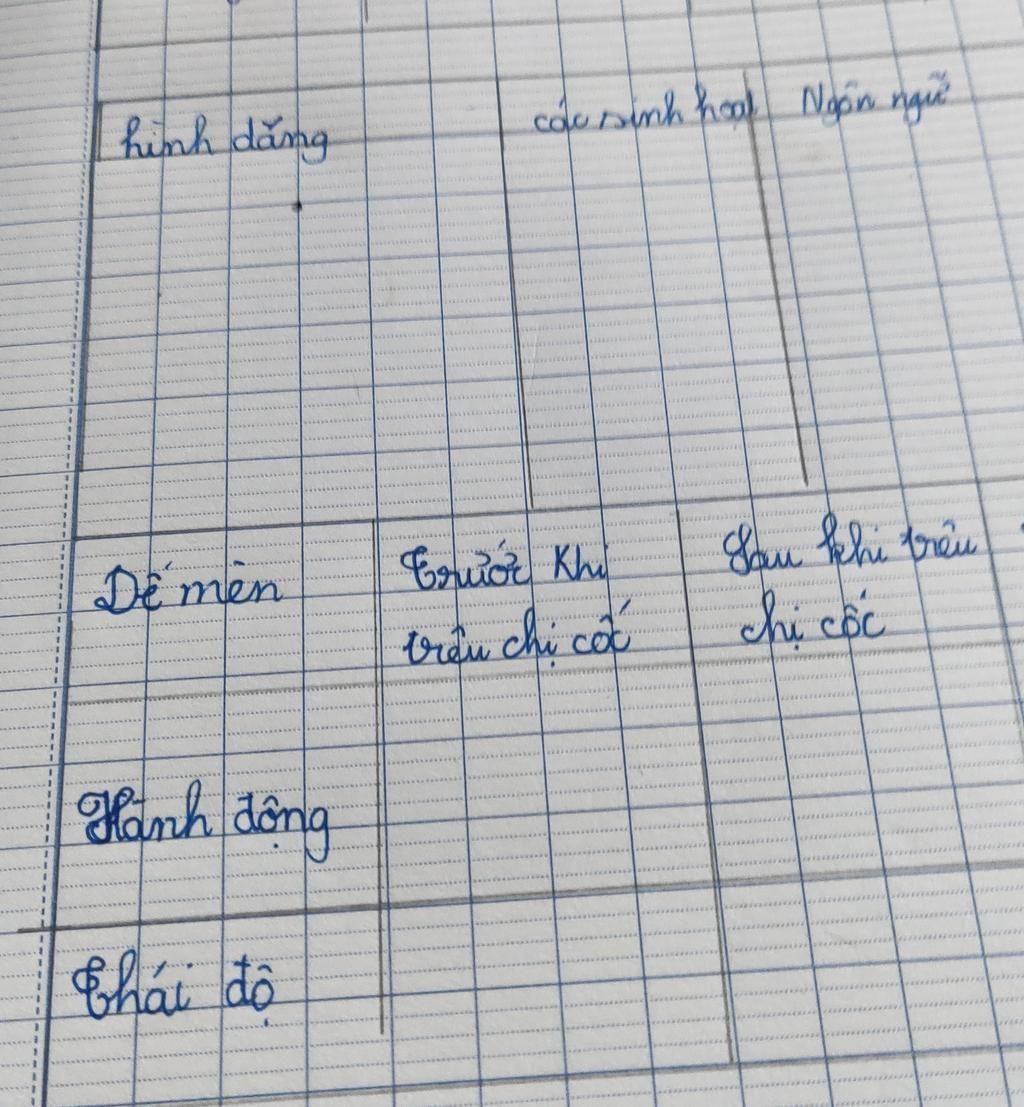 hình dáng
các sinh hoạt
Ngôn ngữ
Dế mèn
Trước khi
trêu chị cốc
Sau khi trêu
chị cốc
Hành động
Thái độ